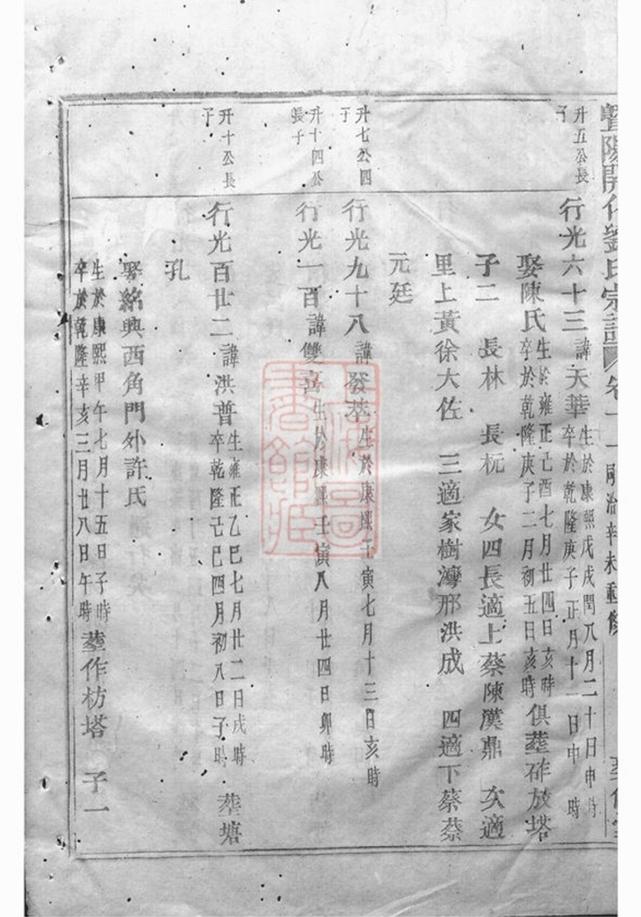 暨陽開化劉氏宗譜 卷十一 同治辛未重修
升五公長子
行光六十三 諱天華 生於康熙戊戌閏八月二十日申時 卒於乾隆庚子正月十一日申時
娶陳氏 生於雍正己酉七月廿四日亥時 卒於乾隆庚子二月初五日亥時 俱葬砟放塔
子二 長林 長杬 女四長適上蔡陳漢鼎 次適
里上黃徐大佐 三適家樹灣邢洪成 四適下蔡蔡
元廷
升七公四子
行光九十八 諱發 生於康熙壬寅七月十三日亥時
升十四公長子
行光一百 諱雙喜 生於康熙壬寅八月廿四日卯時
升十公長子
行光百廿二 諱洪普 生雍正乙巳七月廿二日戌時 卒乾隆己巳四月初八日子時 葬塘
孔
娶紹興西角門外許氏 生於康熙甲午七月十五日子時 卒於乾隆辛亥三月廿八日午時 葬作枋塔 子一